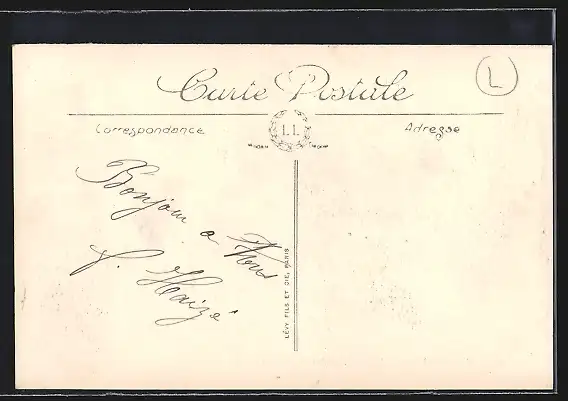 Carte Postale
L
Correspondance
LL
Adresse
Bonjour a Vous
LÉVY FILS ET CIE, PARIS